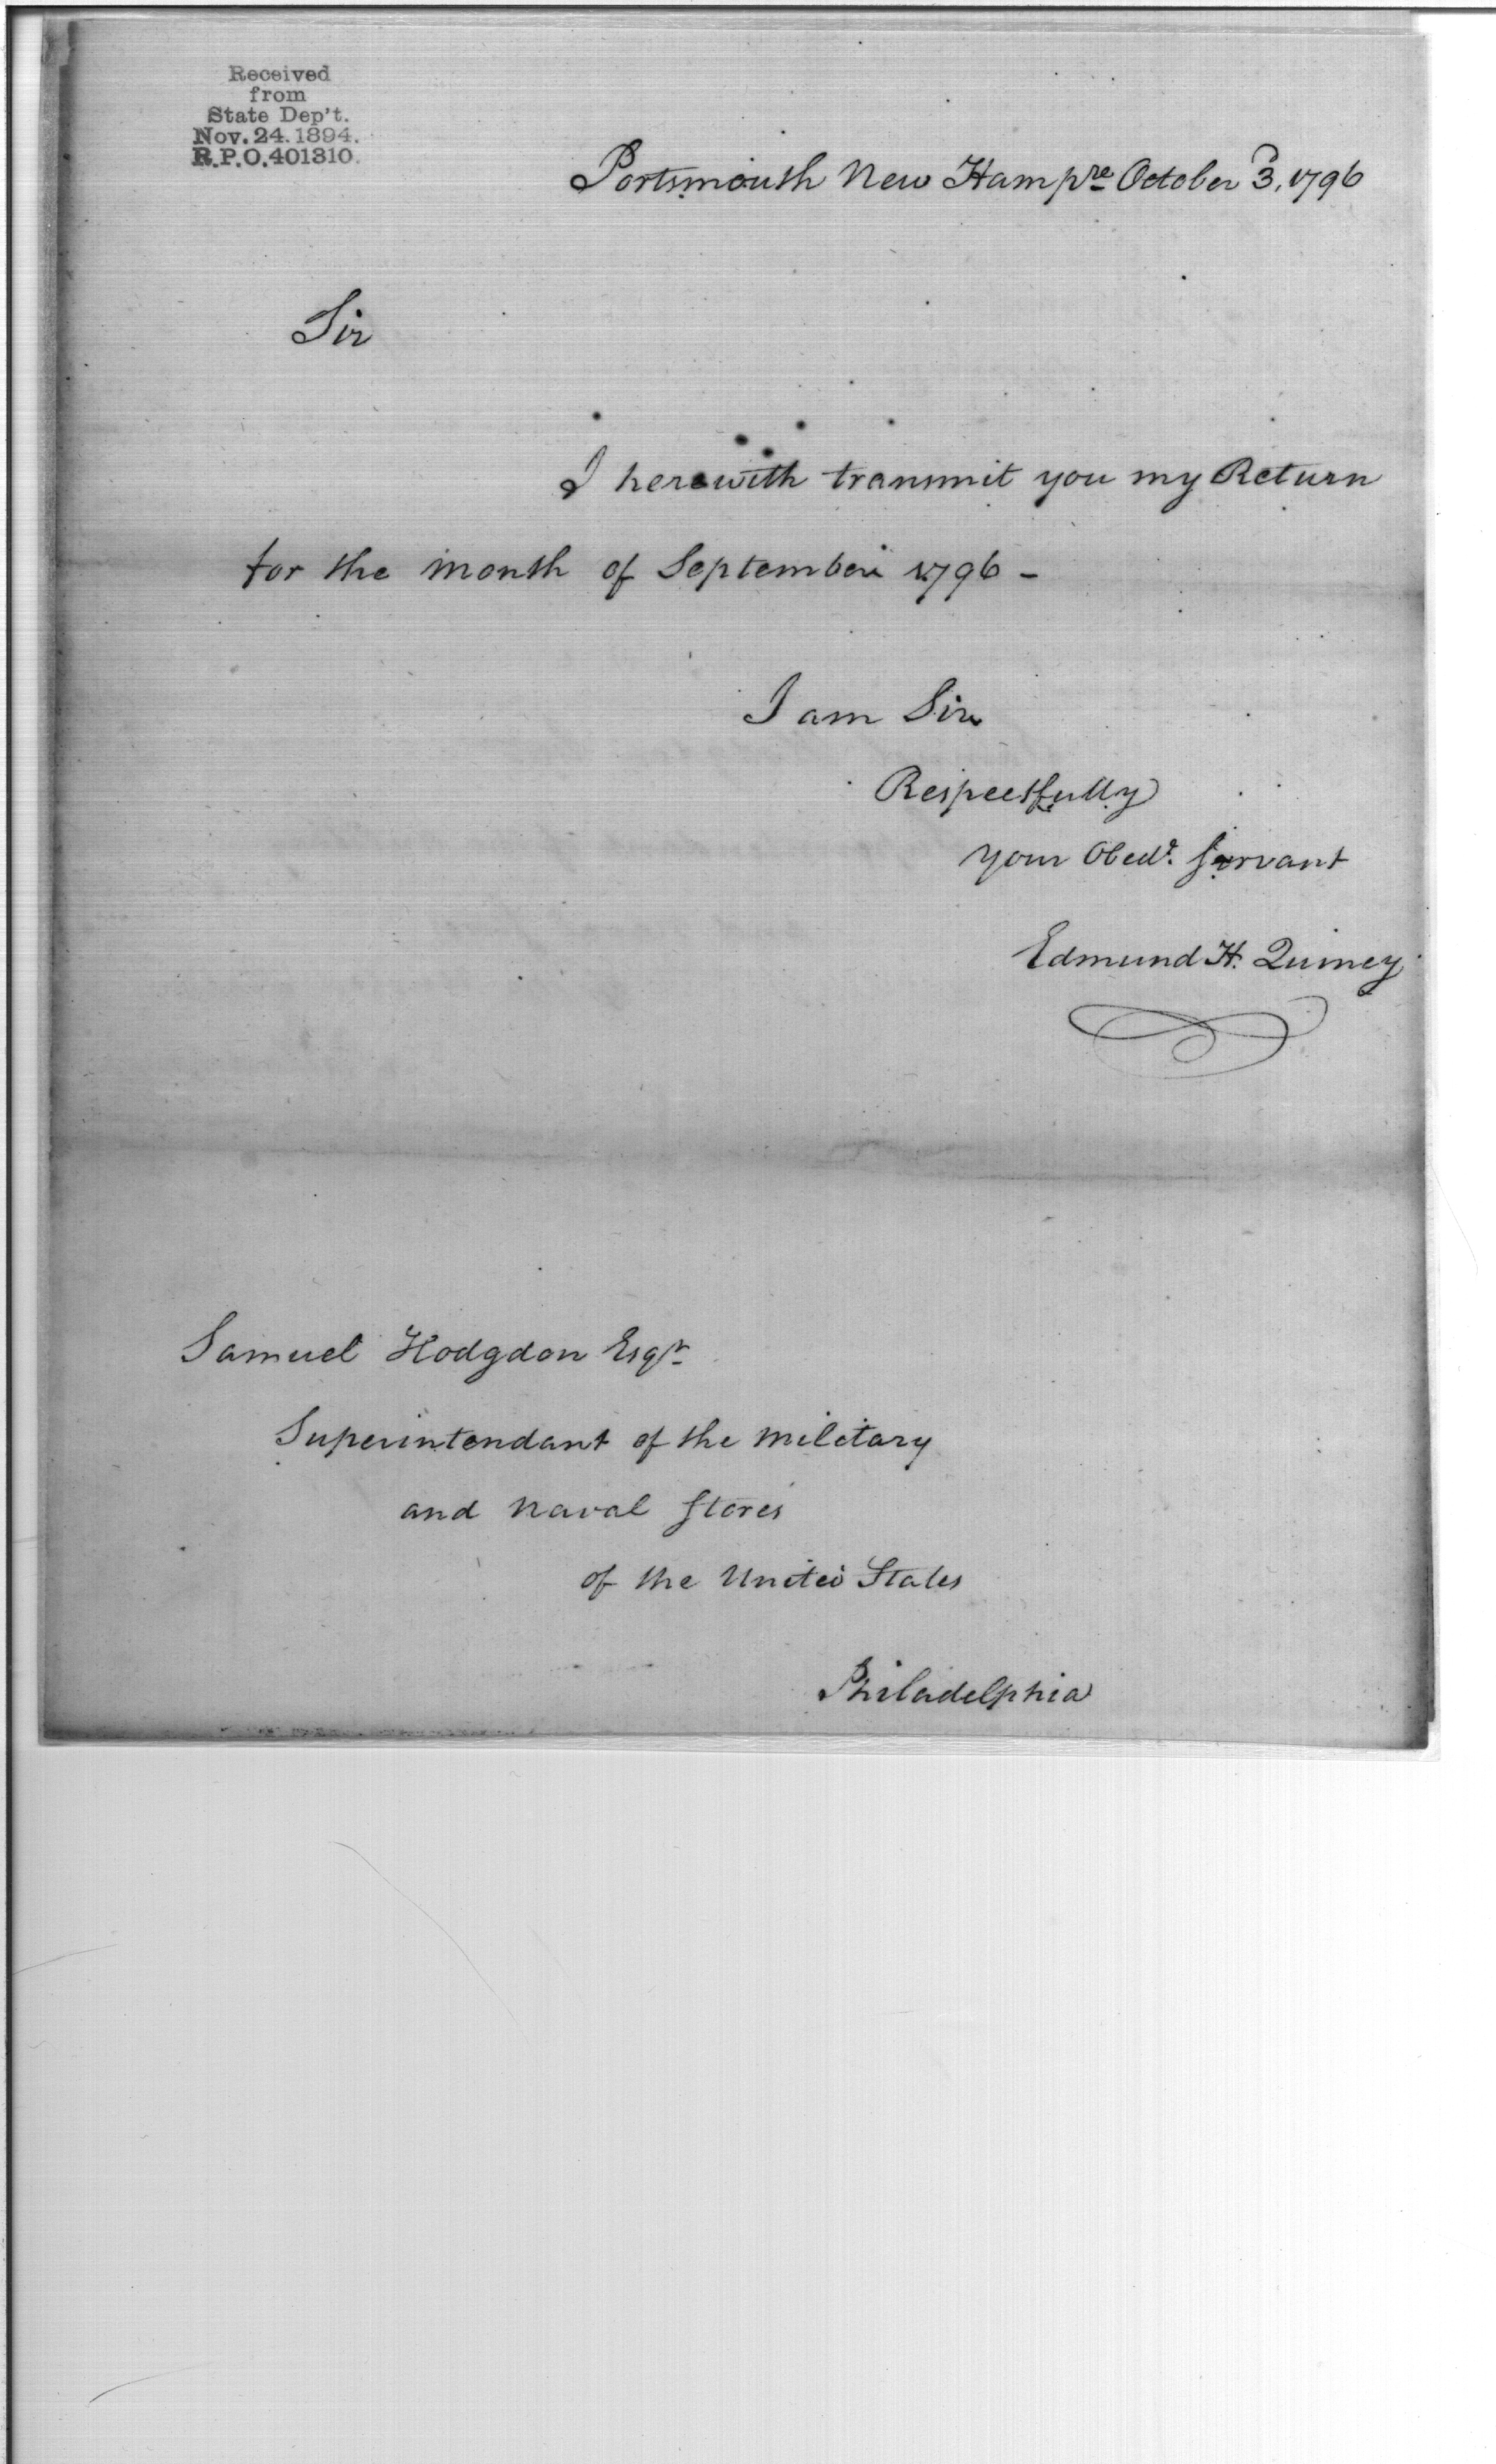 Received
from
State Dep't.
Nov. 24. 1894.
R.P.O. 401310.
Portsmouth New Hampre October 3, 1796
Sir
I herewith transmit you my Return
for the month of September 1796 -
I am Sir
Respectfully
your Obedt. Servant
Edmund H. Quincy
Samuel Hodgdon Esqr
Superintendant of the Military
and Naval Stores
of the United States
Philadelphia